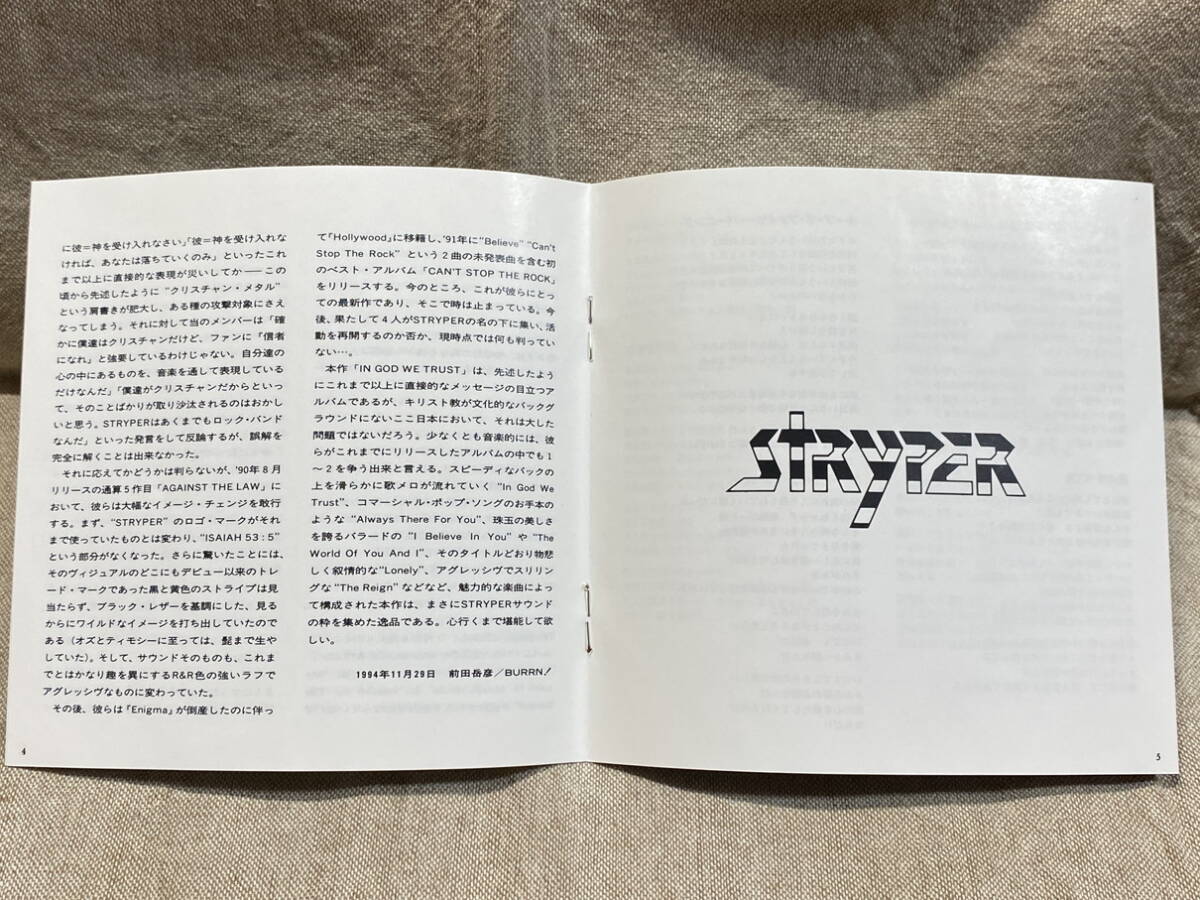 に彼＝神を受け入れなさい」「彼＝神を受け入れな
ければ、あなたは落ちていくのみ」といったこれ
まで以上に直接的な表現が災いしてか──この
頃から先述したように“クリスチャン・メタル”
という肩書きが肥大し、ある種の攻撃対象にさえ
なってしまう。それに対して当のメンバーは「確
かに僕達はクリスチャンだけど、ファンに『信者
になれ』と強要しているわけじゃない。自分達の
心の中にあるものを、音楽を通して表現している
だけなんだ」「僕達がクリスチャンだからといっ
て、そのことばかりが取り沙汰されるのはおかし
いと思う。STRYPERはあくまでもロック・バンド
なんだ」といった発言をして反論するが、誤解を
完全に解くことは出来なかった。
それに応えてかどうかは判らないが、'90年8月
リリースの通算5作目「AGAINST THE LAW」に
おいて、彼らは大幅なイメージ・チェンジを敢行
する。まず、“STRYPER”のロゴ・マークがそれ
まで使っていたものとは変わり、“ISAIAH 53：5”
という部分がなくなった。さらに驚いたことには、
そのヴィジュアルのどこにもデビュー以来のトレ
ード・マークであった黒と黄色のストライプは見
当たらず、ブラック・レザーを基調にした、見る
からにワイルドなイメージを打ち出していたので
ある（オズとティモシーに至っては、髭まで生や
していた）。そして、サウンドそのものも、これま
でとはかなり趣を異にするR&R色の強いラフで
アグレッシヴなものに変わっていた。
その後、彼らは『Enigma』が倒産したのに伴っ
て『Hollywood』に移籍し、'91年に“Believe”“Can't
Stop The Rock”という2曲の未発表曲を含む初
のベスト・アルバム「CAN'T STOP THE ROCK」
をリリースする。今のところ、これが彼らにとっ
ての最新作であり、そこで時は止まっている。今
後、果たして4人がSTRYPERの名の下に集い、活
動を再開するのか否か、現時点では何も判ってい
ない…。
本作「IN GOD WE TRUST」は、先述したよう
にこれまで以上に直接的なメッセージの目立つア
ルバムであるが、キリスト教が文化的なバックグ
ラウンドにないここ日本において、それは大した
問題ではないだろう。少なくとも音楽的には、彼
らがこれまでにリリースしたアルバムの中でも1
～2を争う出来と言える。スピーディなバックの
上を滑らかに歌メロが流れていく“In God We
Trust”、コマーシャル・ポップ・ソングのお手本の
ような“Always There For You”、珠玉の美しさ
を誇るバラードの“I Believe In You”や“The
World Of You And I”、そのタイトルどおり物悲
しく叙情的な“Lonely”、アグレッシヴでスリリン
グな“The Reign”などなど、魅力的な楽曲によっ
て構成された本作は、まさにSTRYPERサウンド
の粋を集めた逸品である。心行くまで堪能して欲
しい。
1994年11月29日　前田岳彦／BURRN!
4
STRYPER
5